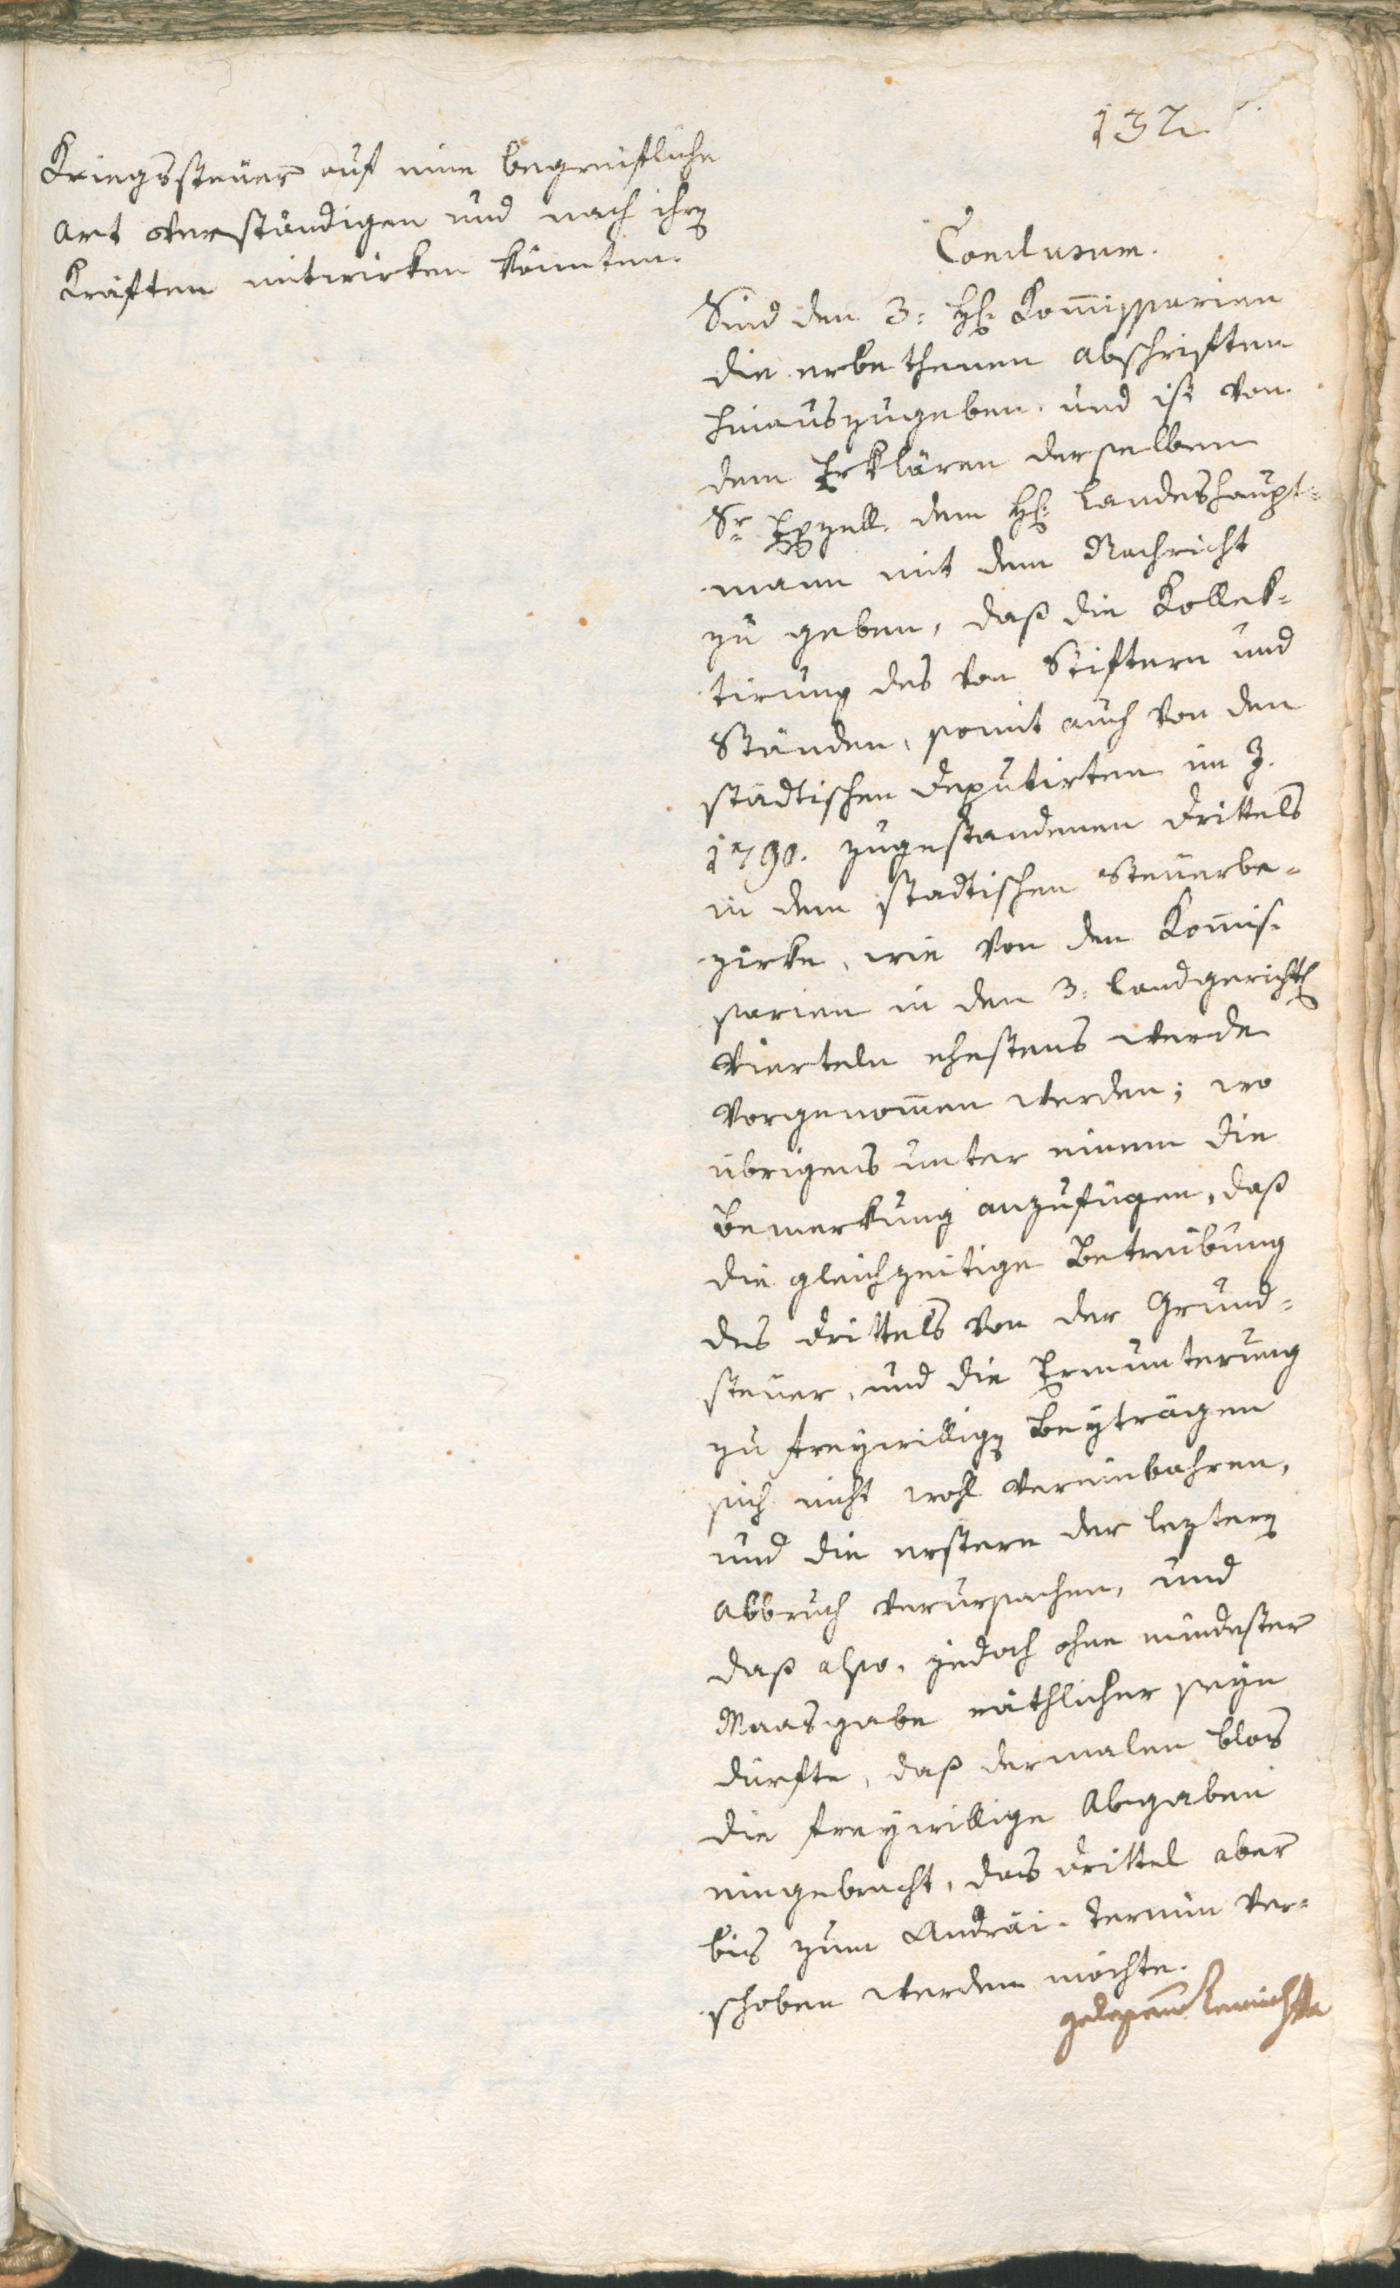 132.
Kriegssteuer auf eine begreifliche
Art verständigen und nach ihrẽ
Kräften mitwirken könnten.
Conclusum.
Sind den 3: Hℏ Kom̄issarien
die erbethenen Abschriften
hinauszugeben, und ist von
dem Erklären derselben
Sr Exzell. dem Hℏ Landeshaupt=
mann mit dem Nachricht
zu geben, daß die Kollek=
tirung des von Stiftern und
Ständen, somit auch von den
städtischen Deputirten im J.
1790. zugestandenen Drittels
in dem städtischen Steuerbe=
zirke, wie von den Kom̄is=
sarien in den 3: landgerichtℏ
Vierteln ehestens werde
vorgenom̄en werden; wo
übrigens unter einem die
Bemerkung anzufügen, daß
die gleichzeitige Betreibung
des Drittels von der Grund=
steuer, und die Ermunterung
zu freywilligẽ Beyträgen
sich nicht wohl vereinbahren,
und die erstere der leztern
Abbruch verursachen, und
daß also, jedoch ohne mindester
Maasgabe räthlicher seyn
dürfte, daß dermalen blos
die freywillige Abgaben
eingebracht, das Drittel aber
bis zum Andräi-Termin ver=
schoben werden möchte.